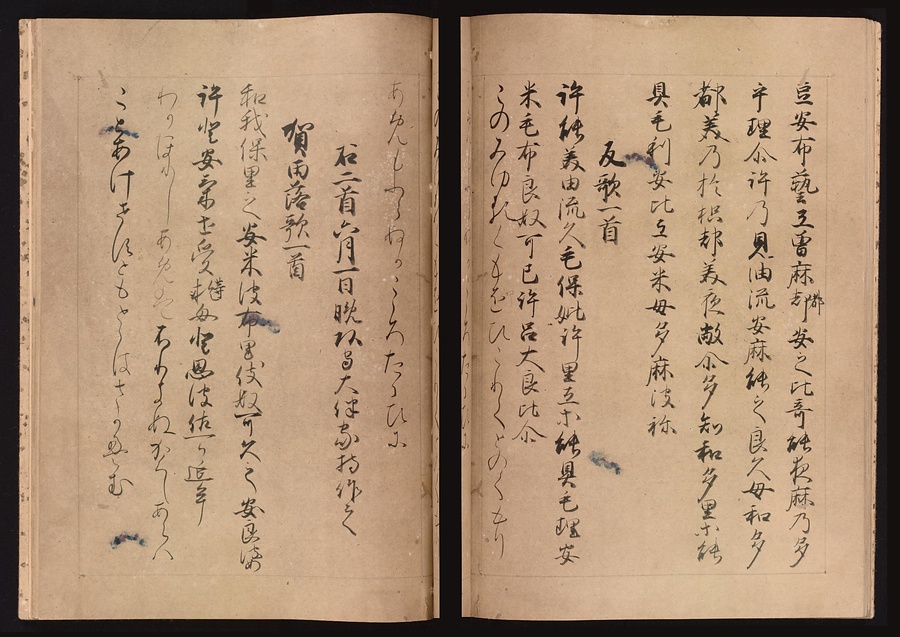 弖安布藝弖曽麻都安之比奇能夜麻乃多
乎理尓許乃見油流安麻能之良久母和多
都美乃於枳都美夜敝尓多知和多里等能
具毛利安比弖安米母多麻波祢
反歌一首
許能美由流久毛保妣許里弖等能具毛理安
米毛布良奴可己許呂大良比尓
このみゆるくもほひこりてとのくもり
あめもふらぬかこころたらひに
右二首六月一日晩頭守大伴家持作之
賀雨落歌一首
和我保里之安米波布里伎奴可久之安良婆
許登安氣世受杼母登思波佐可延牟
わかほりしあめはふりきぬかくしあらハ
ことあけせすともとしはさかえむ